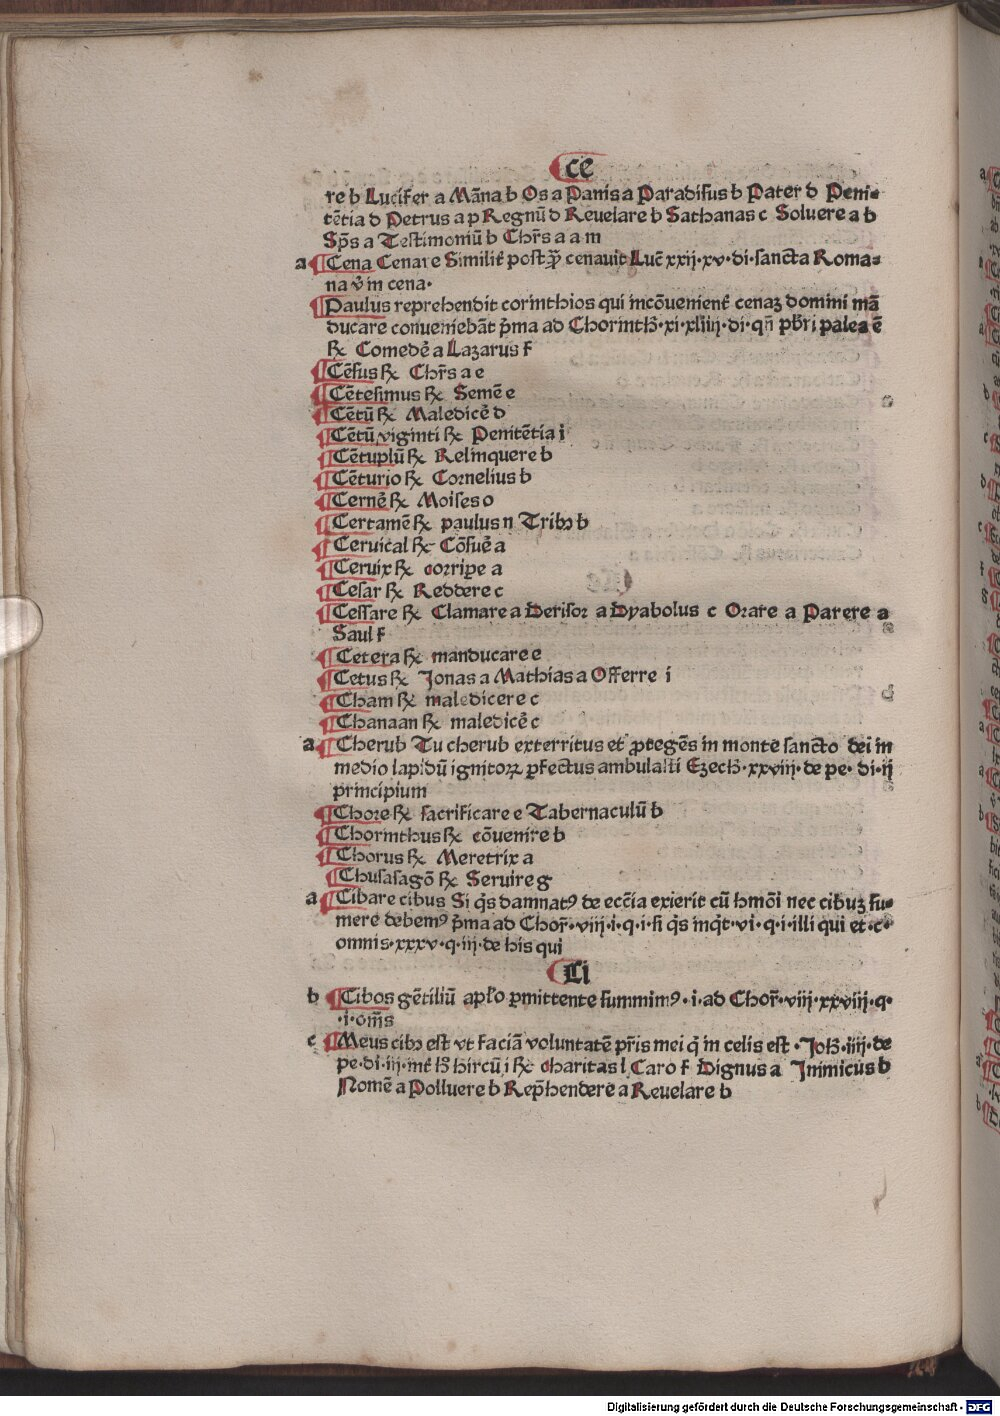 ce
re b Lucifer a Mãna b Os a Panis a Paradisus b Pater d Peni-
tẽtia d Petrus a p Regnũ d Reuelare b Sathanas c Soluere a b
Sp̃s a Testimoniũ b Chr̃s a a m
a ¶Cena Cenare Similit̃ postq̃ᷓ cenauit Luc̃ xxij·xv·di·sancta Roma-
na v̉ in cena·
¶Paulus reprehendit corinthios qui incõuenient̃ cenaꝫ domini mã
ducare conueniebãt p̃ma ad Chorinth̃·xi·xliiij·di·qñ pb̃ri palea ẽ
℞ Comedẻ a Lazarus f
¶Cẽsus ℞ Chr̃s a e
¶Cẽtesimus ℞ Semẽ e
¶Cẽtũ ℞ Maledicẻ d
¶Cẽtũ viginti ℞ Penitẽtia i
¶Cẽtuplũ ℞ Relinquere b
¶Cẽturio ℞ Cornelius b
¶Cernẻ ℞ Moises o
¶Certamẽ ℞ paulus n Tribꝫ b
¶Ceruical ℞ Cõsuẻ a
¶Ceruix ℞ corripe a
¶Cesar ℞ Reddere c
¶Cessare ℞ Clamare a Derisor a Dyabolus c Orare a Parere a
Saul f
¶Cetera ℞ manducare e
¶Cetus ℞ Jonas a Mathias a Offerre i
¶Cham ℞ maledicere c
¶Chanaan ℞ maledicẻ c
a ¶Cherub Tu cherub exterritus et ꝓtegẽs in monte sancto dei in
medio lapidũ ignitoꝝ ꝑfectus ambulasti Ezech̃·xxviij·de pe·di·ij
principium
¶Chore ℞ sacrificare e Tabernaculũ b
¶Chorinthus ℞ cõuenire b
¶Chorus ℞ Meretrix a
¶Chusasagõ ℞ Seruire g
a ¶Cibare cibus Si q̃s damnatꝰ de ecc̃ia exierit cũ hmõi nec cibuꝫ su-
mere debemꝰ p̃ma ad Chor̃·viij·i·q·i·si q̃s inq̃t·vi·q·i·illi qui et·c·
omnis·xxxv·q·iij·de his qui
Ci
b ¶Cibos gẽtiliũ apl̃o ꝑmittente summimꝰ·i·ad Chor̃·viij·xxviij·q·
·i·om̃s
c ¶Meus cibꝫ est vt faciã voluntatẽ pr̃is mei q̃ in celis est·Joh̃·iiij·de
pe·di·iij·int̃ h̃ hircũ i ℞ charitas l Caro f Dignus a Jnimicus b
Nomẽ a Polluere b Rep̃hendere a Reuelare b
Digitalisierung gefördert durch die Deutsche Forschungsgemeinschaft - DFG